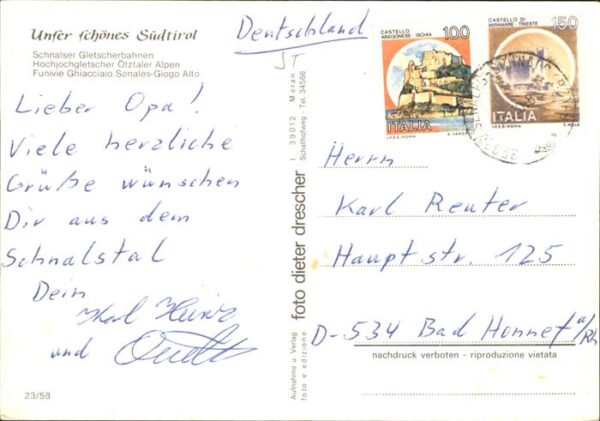 Unser schönes Südtirol
Schnalser Gletscherbahnen
Hochjochgletscher Ötztaler Alpen
Funivie Ghiacciaio Senales-Giogo Alto
Lieber Opa!
Viele herzliche
Grüße wünschen
Dir aus dem
Schnalstal
Dein
Karl Heinz
und
23/58
Deutschland
CASTELLO
ARAGONESE ISCHIA
100
ITALIA
I.P.Z.S. ROMA
CASTELLO DI
MIRAMARE - TRIESTE
150
ITALIA
I.P.Z.S. ROMA
Aufnahme u. Verlag
foto e edizione
foto dieter drescher
I 39012 Meran
Schallhofweg - Tel. 34566
Herrn
Karl Reuter
Hauptstr. 125
D-534 Bad Honnef a/Rh
nachdruck verboten - riproduzione vietata